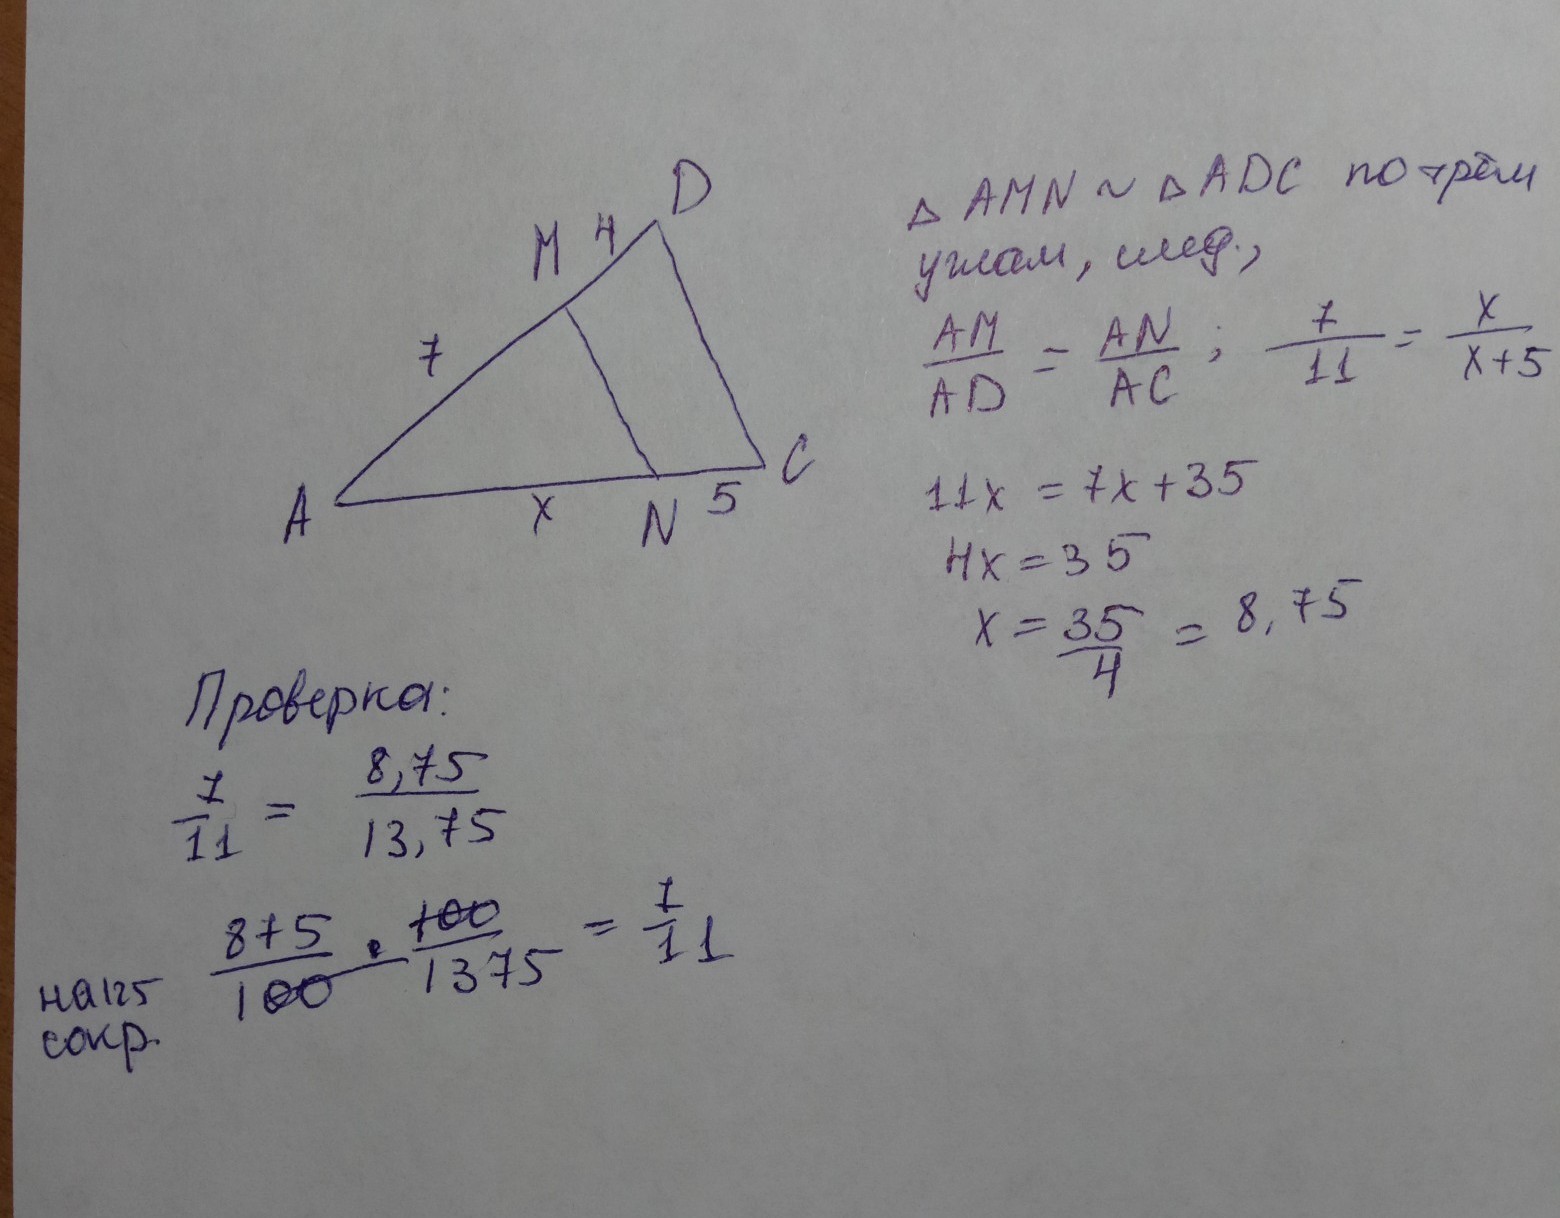 D
M 4
7
A x N 5 C
△ AMN ~ △ ADC по трём
углам, след.,
AM/AD = AN/AC ; 7/11 = x/x+5
11x = 7x+35
4x = 35
x = 35/4 = 8,75
Проверка:
7/11 = 8,75/13,75
875/100 · 100/1375 = 7/11
на 125
сокр.